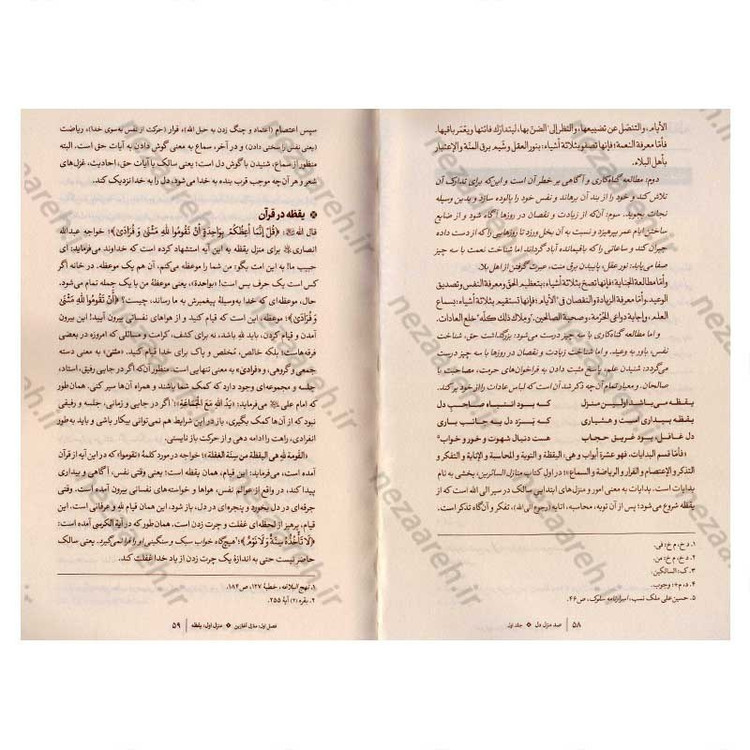 الأیام، والتنصّل عن تضییعها، والنظر إلی الضنّ بها، لیتدارك فائتها ویعمّر باقیها.
فأمّا معرفة النعمة؛ فإنها تصفو بثلاثة أشیاء: بنور العقل وشَیم برق المنّة والإعتبار
بأهل البلاء.
دوم: مطالعه گناه‌کاری و آگاهی بر خطر آن است و این‌که برای تدارک آن
تلاش کند تا از بند آن برهاند و نفس خود را پالوده سازد و بدین وسیله
نجات بجوید. سوم: آن‌که از زیادت و نقصان در روزها آگاه شود و از ضایع
ساختن ایام عمر بپرهیزد و نسبت به آن بخل ورزد تا روزهایی را که از دست داده
جبران کند و ساعاتی را که باقیمانده آباد گرداند اما شناخت نعمت با سه چیز
صفا می‌یابد: نور عقل، پاییدن برق منت، عبرت گرفتن از اهل بلا.
وأمّا مطالعة الجنایة؛ فإنها تصحّ بثلاثة أشیاء: بتعظیم الحقّ ومعرفة النفس وتصدیق
الوعید. وأمّا معرفة الزیادة والنقصان في الأیّام؛ فإنها تستقیم بثلاثة أشیاء: بسماع
العلم، وإجابة دواعي الحُرمة، وصحبة الصالحین. وملاك ذلك كلّه خلع العادات.
و اما مطالعه گناه‌کاری با سه چیز درست می‌شود: بزرگداشت حق، شناخت
نفس، باور به وعید. و اما شناخت زیادت و نقصان در روزها با سه چیز درست
می‌گردد: شنیدن علم، پاسخ مثبت دادن به فراخوان‌های حرمت، مصاحبت با
صالحان. و معیار تمام آن چه ذکر شد آن است که لباس عادات را از خود برکند.
یقظه می‌باشد اولین منزل که بود انتباه صاحب دل
یقظه بیداری است و هشیاری که بَرَد دل به جانب باری
دل غافل، بود غریق حجاب هست دنبال شهوت و خور و خواب
«فأمّا قسم البدایات، فهو عشرة أبواب وهي: الیقظة و التوبة و المحاسبة و الإنابة و التفکر و
التذکر و الإعتصام و الفرار و الریاضة و السماع»؛ در اول کتاب منازل السائرین، بخشی به نام
بدایات است. بدایات به معنی امور و منزل‌های ابتدایی سالک در سیر الی الله است که از
یقظه شروع می‌شود؛ پس از آن توبه، محاسبه، انابه (رجوع الی الله)، تفکر و آنگاه تذکر است.
۱. د، خ، م: في.
۲. د، خ، م: من.
۳. ک: السالکین.
۴. د، م +: وجوب.
۵. حسین‌علی ملک نسب، اسرارنامه سلوک، ص۴۶.
۵۸ | صد منزل دل ❖ جلد اول
سپس اعتصام (اعتماد و چنگ زدن به حبل الله)، فرار (حرکت از نفس به‌سوی خدا)، ریاضت
(یعنی نفس را سختی دادن) و در آخر، سماع به معنی گوش دادن به آیات حق است. البته
منظور از سماع، شنیدن با گوش دل است؛ یعنی سالک با آیات حق، احادیث، غزل‌های
شعر و هر آن چه موجب قرب بنده به خدا می‌شود، دل را به خدا نزدیک کند.
❖ یقظه در قرآن
قال الله: ﴿قُلْ إِنَّما أَعِظُكُمْ بِواحِدَةٍ أَنْ تَقُومُوا لِلَّهِ مَثْنى‏ وَ فُرادى﴾؛ خواجه عبدالله
انصاری برای منزل یقظه به این آیه استشهاد کرده است که خداوند می‌فرماید: ای
حبیب ما! به این امت بگو: من شما را موعظه می‌کنم، آن هم یک موعظه. در خانه اگر
کس است یک حرف بس است! «بواحدة»، یعنی موعظهٔ من با یک جمله تمام می‌شود.
حال، موعظه‌ای که خدا به‌وسیلهٔ پیغمبرش به ما رساند، چیست؟ ﴿أَنْ تَقُومُوا لِلَّهِ مَثْنى
وَ فُرادى﴾؛ موعظه، این است که قیام کنید و از هواهای نفسانی بیرون آیید! این بیرون
آمدن و قیام کردن، باید لله باشد، نه برای کشف، کرامت و مسائلی که امروزه در بعضی
فرقه‌هاست؛ بلکه خالص، مُخلص و پاک برای خدا قیام کنید. «مثنی»، به معنی دسته
جمعی و گروهی، و «فرادی» به معنی تنهایی است. منظور آن‌که اگر در جایی رفیق، استاد،
جلسه و مجموعه‌ای وجود دارد که کمک شما باشند و همراه آن‌ها سیر کنی. همان‌طور
که امام علی می‌فرماید: «یَدُ اللهِ مَعَ الْجَمَاعَةِ»؛ اگر در جایی و زمانی، جلسه و رفیقی
که از آن‌ها کمک بگیری، باز در این شرایط هم نمی‌توانی بیکار باشی و باید به‌طور
انفرادی، راهت را ادامه دهی و از حرکت باز نایستی.
«القومة لله هي الیقظة من سِنَة الغفلة»؛ خواجه در مورد کلمهٔ «تقوموا» که در این آیه از قرآن
آمده است، می‌فرماید: این قیام، همان یقظه است؛ یعنی نفس، آگاهی و بیداری
پیدا کند، در واقع از عوالم نفس، هواها و خواسته‌های نفسانی بیرون آمده است. وقتی
جرقه‌ای در دل بخورد و پنجره‌ای در دل، باز شود، این همان قیام لله و عرفانی است. این
قیام، پرهیز از لحظه‌ای غفلت و چرت زدن است. همان‌طور که در آیة الکرسی آمده است:
﴿لا تَأْخُذُهُ سِنَةٌ وَلا نَوْمٌ﴾؛ «هیچ‌گاه خواب سبک و سنگینی او را فرا نمی‌گیرد». یعنی سالک
حاضر نیست حتی به اندازهٔ یک چرت زدن از یاد خدا غفلت کند.
۱. نهج البلاغه، خطبهٔ ۱۲۷، ص۱۸۴.
۲. بقره (۲) آیهٔ ۲۵۵.
فصل اول: منازل آغازین ❖ منزل اول: یقظه | ۵۹
nezaareh.ir